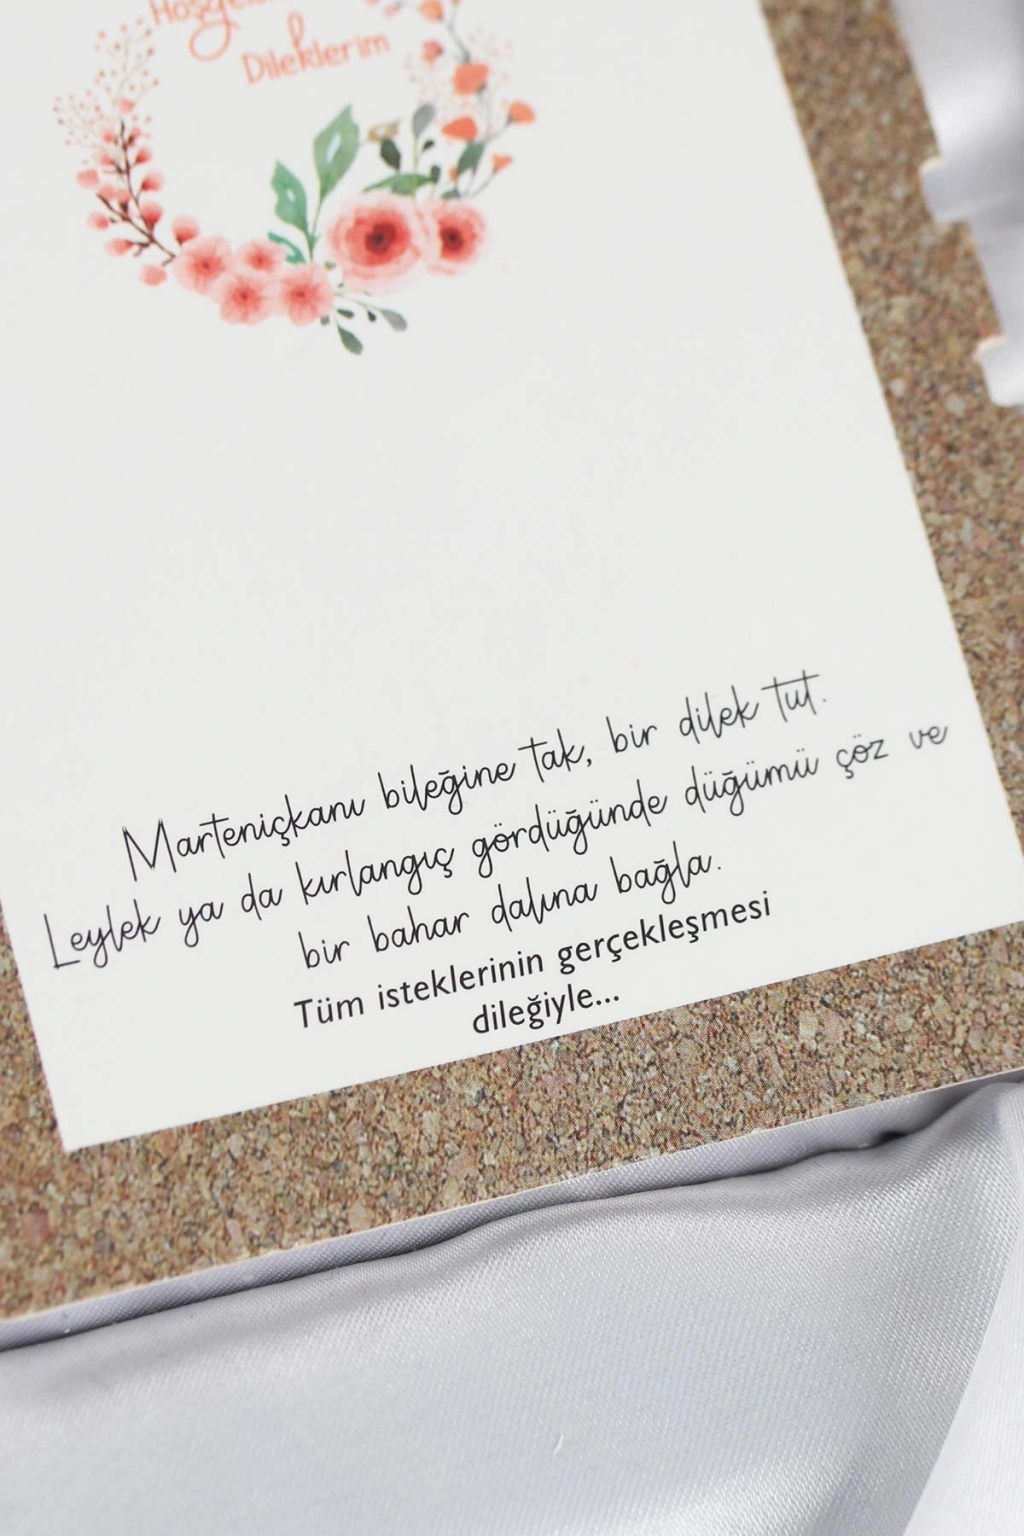 Dileklerim
Marteniçkanı bileğine tak, bir dilek tut.
Leylek ya da kırlangıç gördüğünde düğümü çöz ve
bir bahar dalına bağla.
Tüm isteklerinin gerçekleşmesi
dileğiyle...